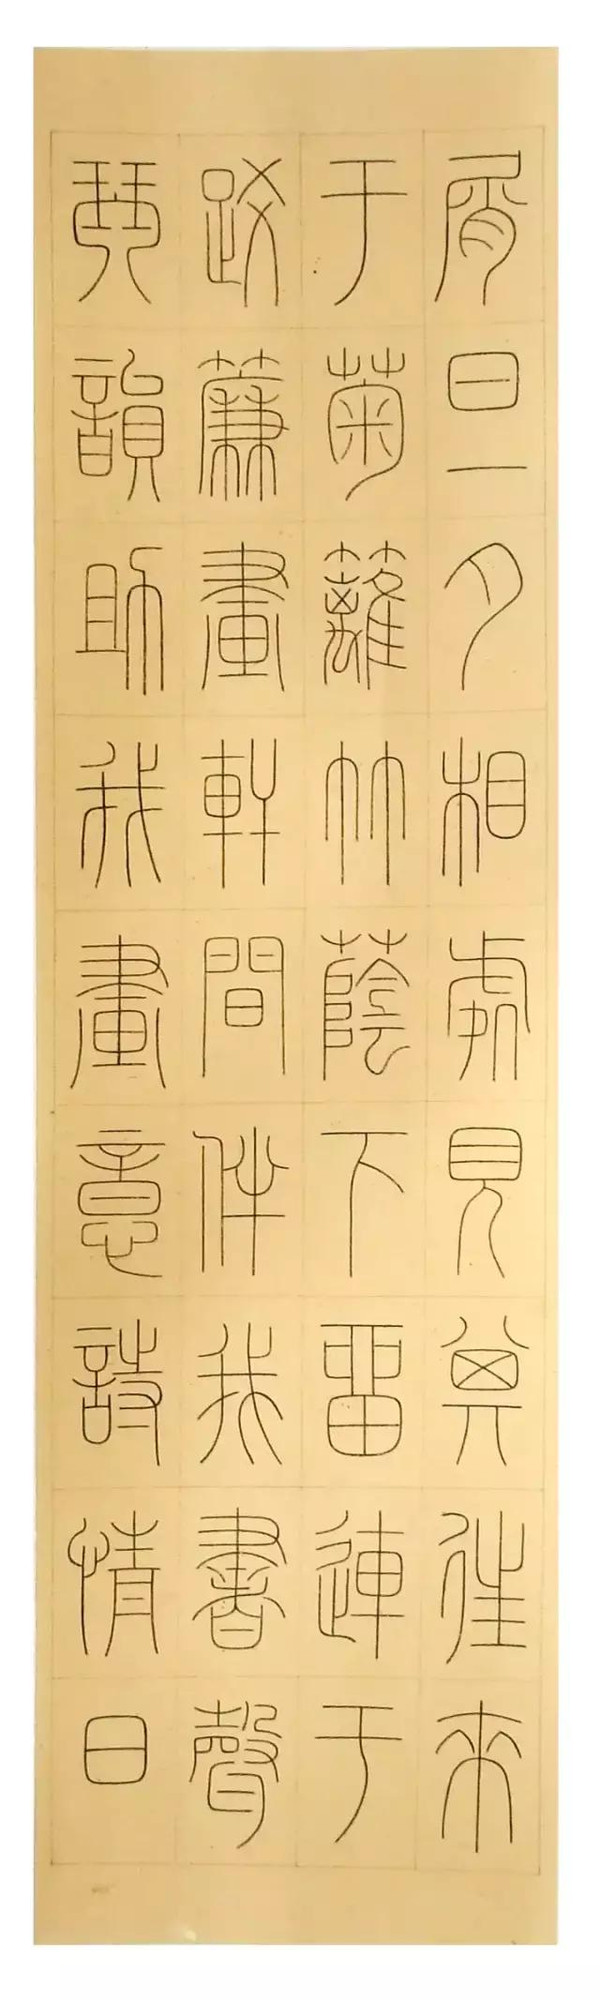 旦夕相處見其往來
于菊籬竹蔭下留連于
疏簾畫軒間伴我書聲
琴韻助我畫意詩情日